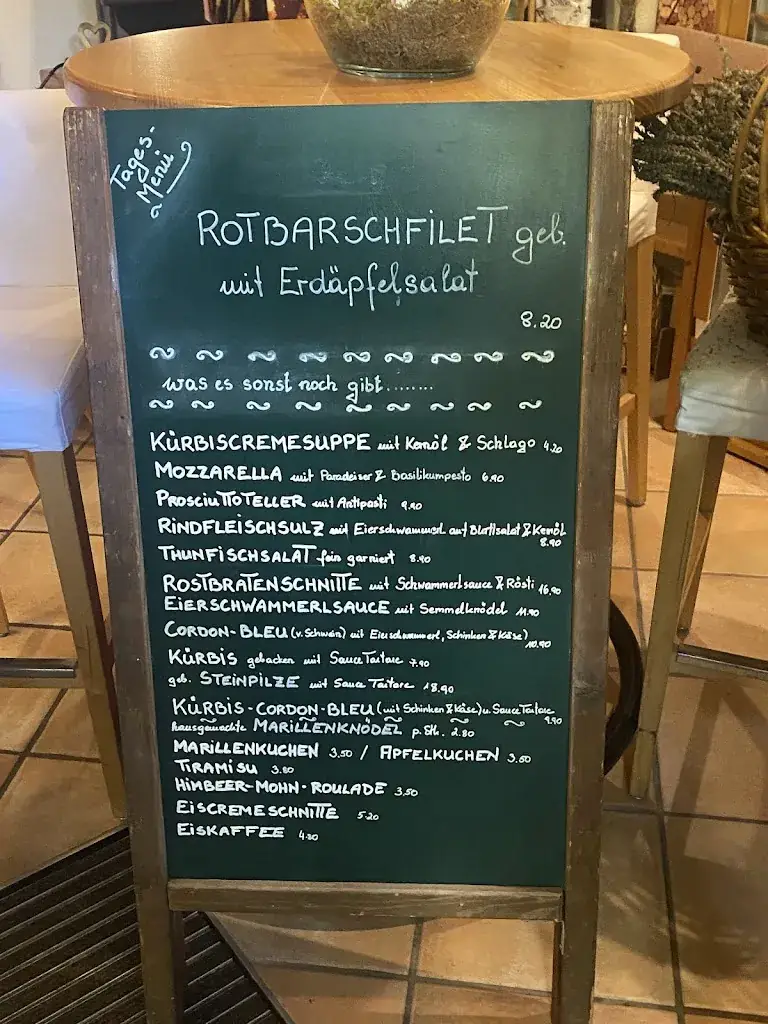 Tages-
Menü
ROTBARSCHFILET geb.
mit Erdäpfelsalat
8.20
was es sonst noch gibt........
KÜRBISCREMESUPPE mit Kernöl & Schlago 4.20
MOZZARELLA mit Paradeiser & Basilikumpesto 6.90
PROSCIUTTOTELLER mit Antipasti 9.90
RINDFLEISCHSULZ mit Eierschwammerl auf Blattsalat & Kernöl
8.90
THUNFISCHSALAT fein garniert 8.90
ROSTBRATENSCHNITTE mit Schwammerlsauce & Rösti 16,90
EIERSCHWAMMERLSAUCE mit Semmelknödel 11.90
CORDON-BLEU (v. Schwein) mit Eierschwammerl, Schinken & Käse)
10,90
KÜRBIS gebacken mit Sauce Tartare 7.90
geb. STEINPILZE mit Sauce Tartare 18.90
KÜRBIS-CORDON-BLEU (mit Schinken & Käse) u. Sauce Tartare
9.90
hausgemachte MARILLENKNÖDEL p. Stk. 2.80
MARILLENKUCHEN 3,50 / APFELKUCHEN 3.50
TIRAMISU 3.80
HIMBEER-MOHN-ROULADE 3,50
EISCREMESCHNITTE 5.20
EISKAFFEE 4.80